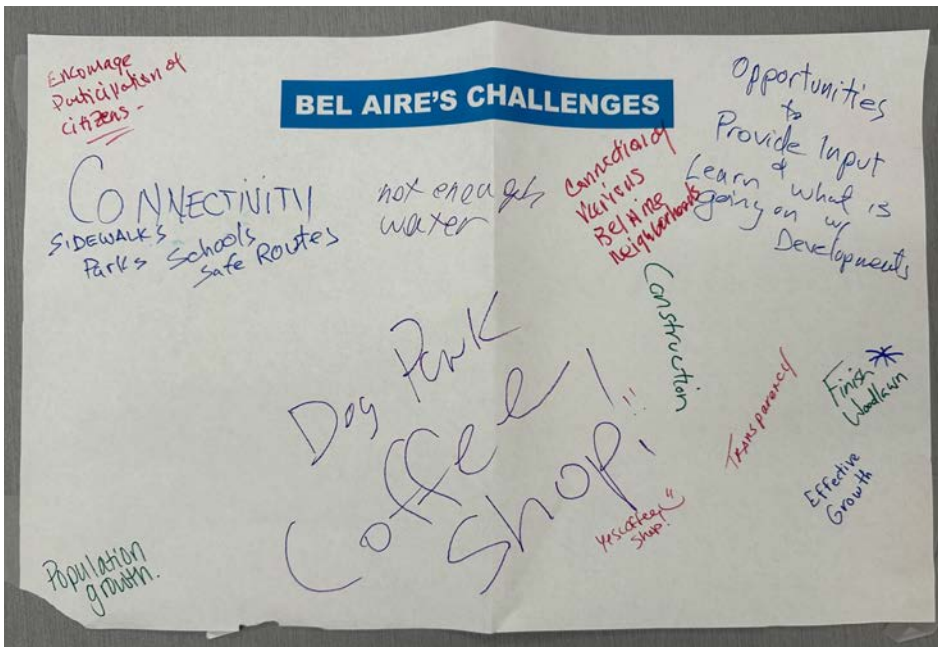 Encourage
Participation of
citizens -
BEL AIRE'S CHALLENGES
Opportunities
to
Provide Input
&
Learn what is
going on w/
Developments
CONNECTIVITY
SIDEWALKS
Parks Schools
Safe Routes
not enough
water
Connection of
Various
Bel Aire
neighborhoods
Construction
Dog Park
Coffee
Shop!
Transparency
Finish
Woodlawn
Effective
Growth
yes coffee
shop!
Population
growth.